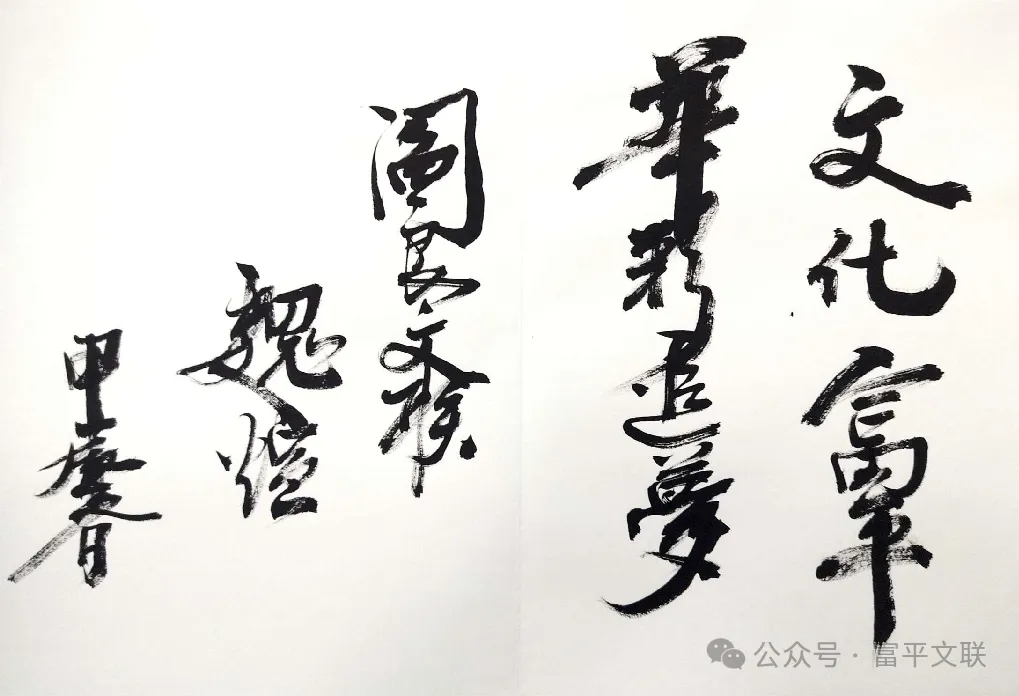 文化富平
華彩追夢
阎良文联
魏
甲辰春
公众号 · 富平文联